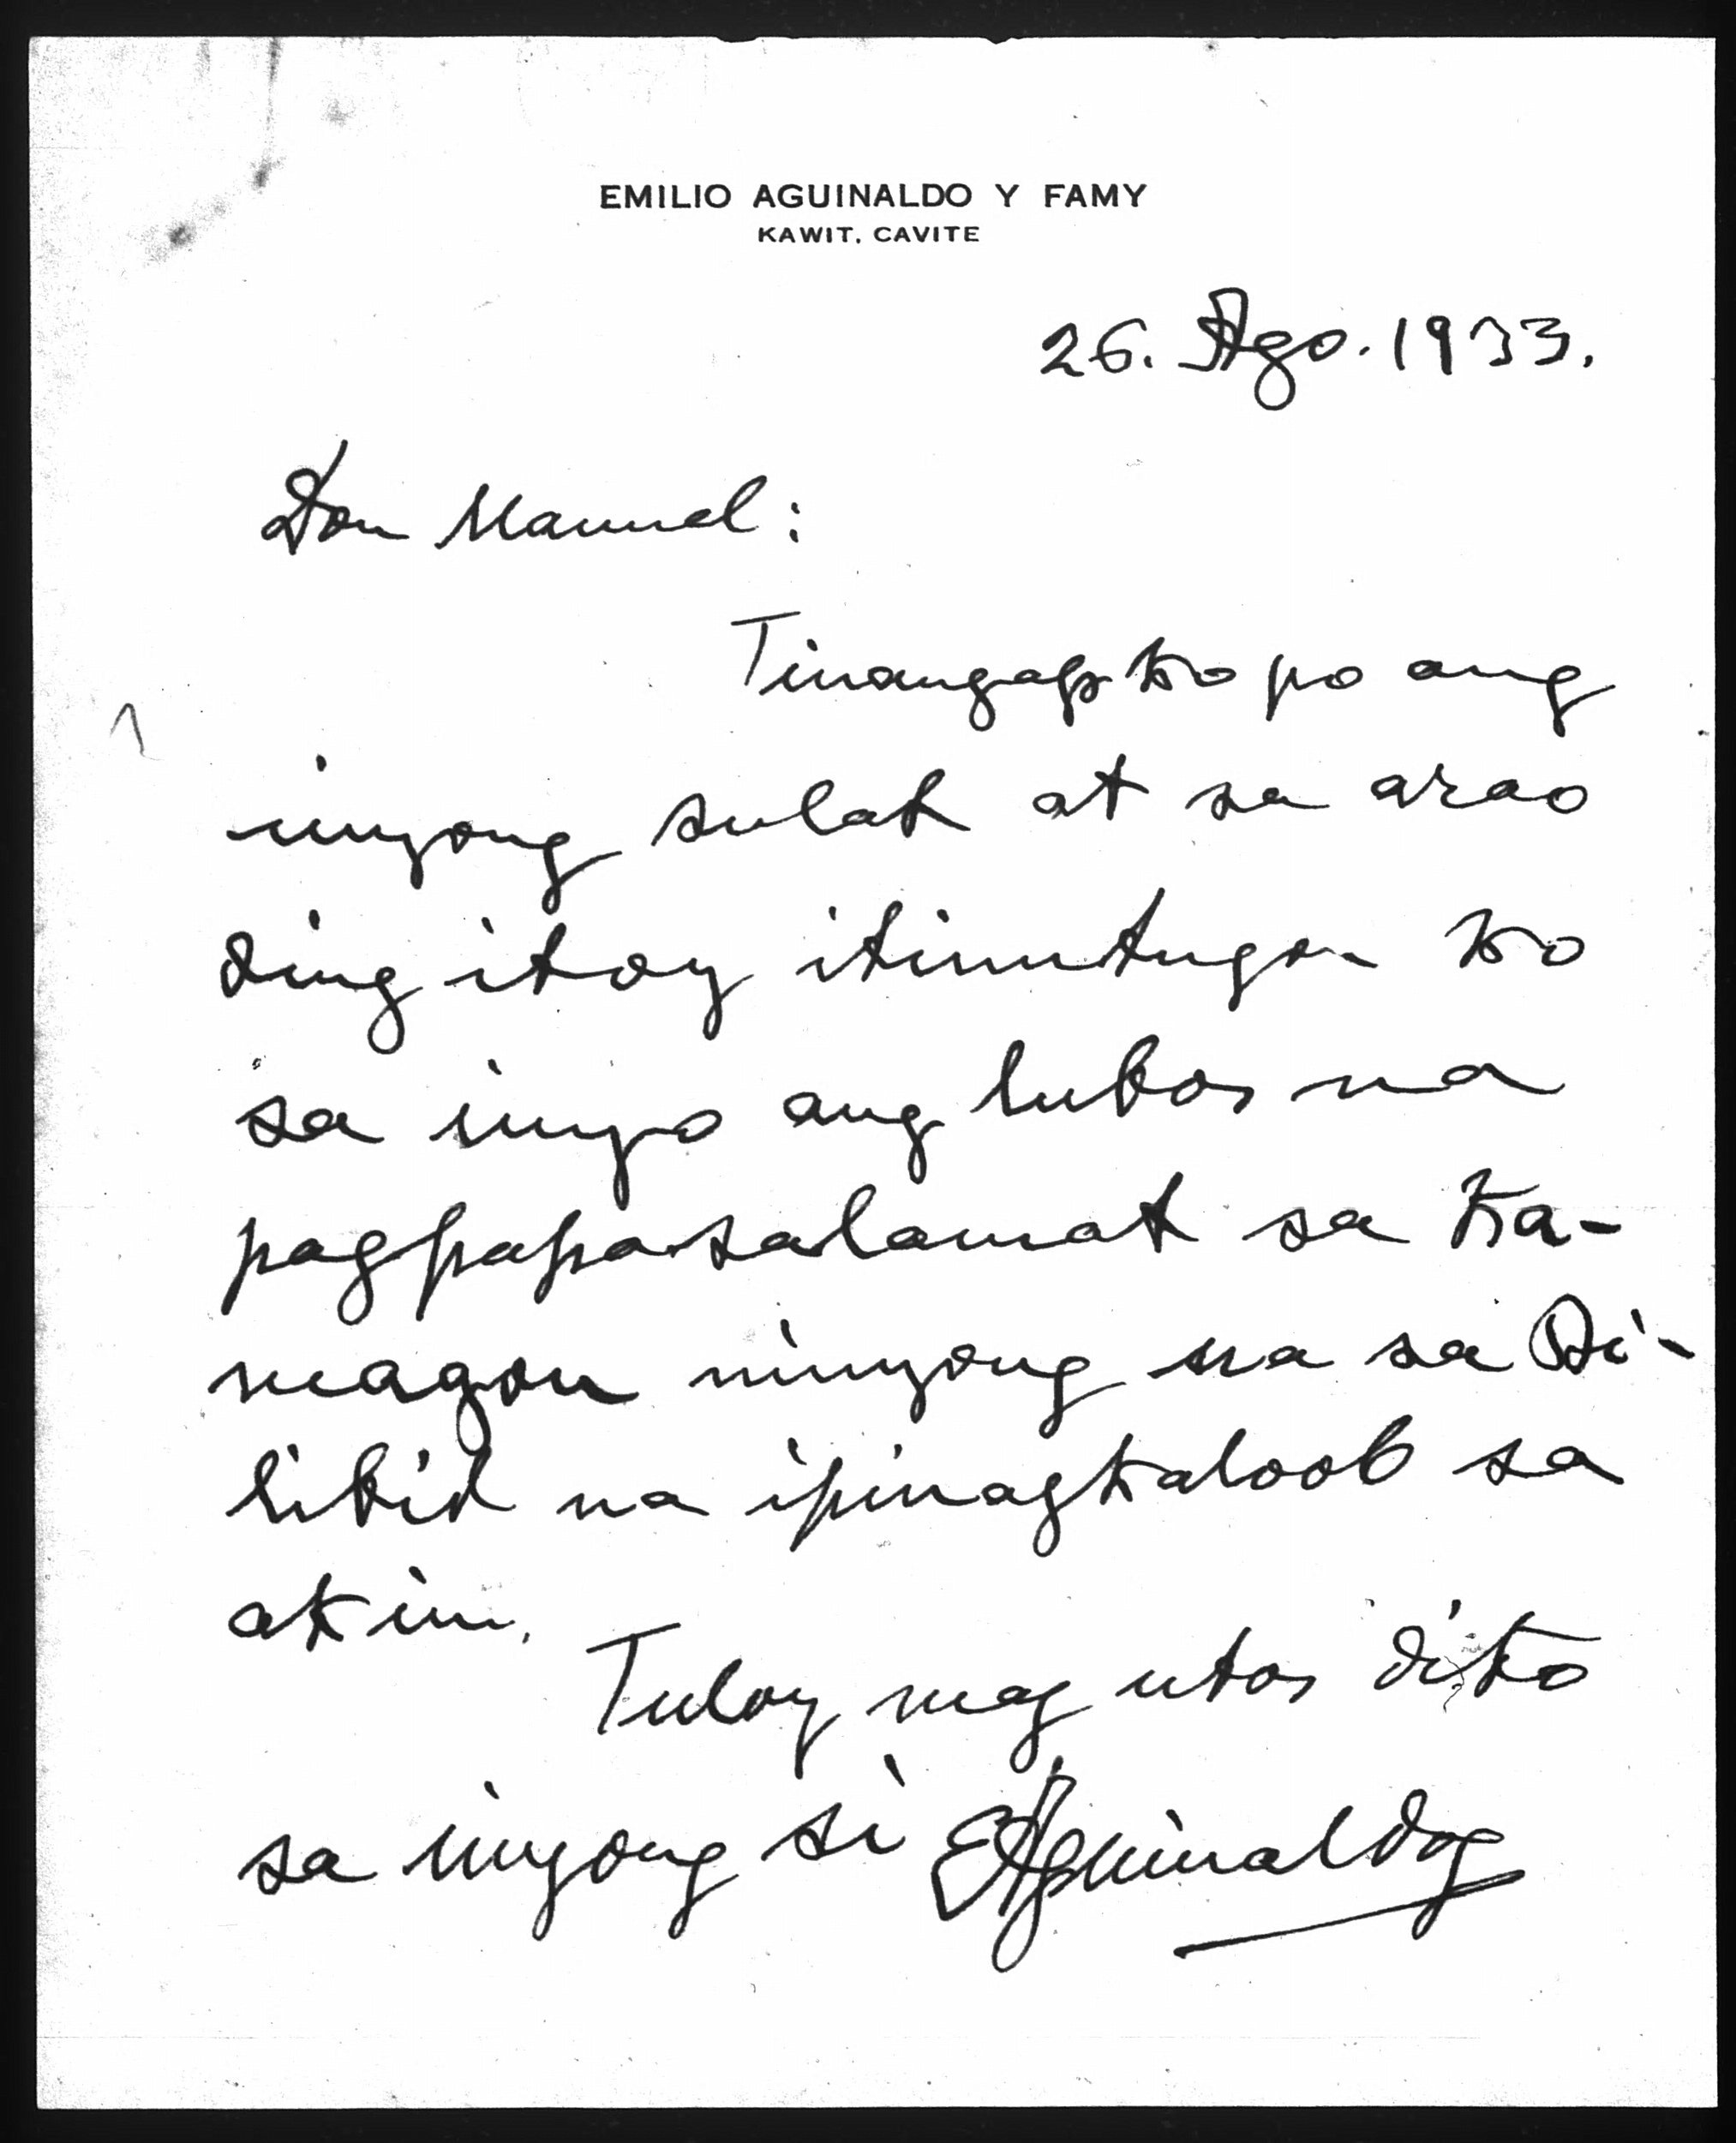 EMILIO AGUINALDO Y FAMY
KAWIT, CAVITE
26. Ago. 1933.
Don Manuel:
Tinangap ko po ang
inyong sulat at sa arao
ding itoy itinutugon ko
sa inyo ang lubos na
pagpapasalamat sa ka-
magon ninyong na sa Bi-
libid na ipinagkaloob sa
akin.
Tuloy mag utos dito
sa inyong si EAguinaldo